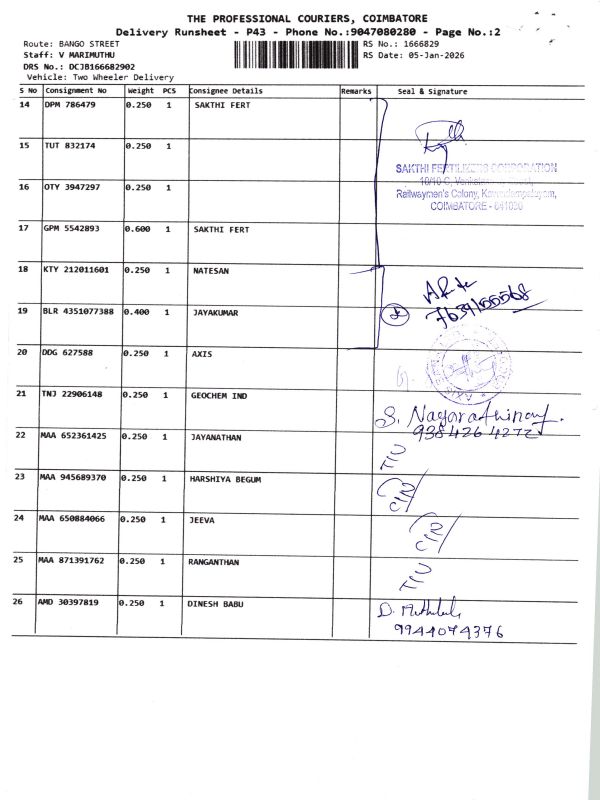 THE PROFESSIONAL COURIERS, COIMBATORE
Delivery Runsheet - P43 - Phone No.:9047080280 - Page No.:2
Route: BANGO STREET RS No.: 1666829
Staff: V MARIMUTHU RS Date: 05-Jan-2026
DRS No.: DCJB166682902
Vehicle: Two Wheeler Delivery
S No Consignment No Weight PCS Consignee Details Remarks Seal & Signature
14 DPM 786479 0.250 1 SAKTHI FERT
15 TUT 832174 0.250 1
SAKTHI FERTILIZERS CORPORATION
16 OTY 3947297 0.250 1
Railwaymen's Colony,
COIMBATORE - 641030
17 GPM 5542893 0.600 1 SAKTHI FERT
18 KTY 212011601 0.250 1 NATESAN
19 BLR 4351077388 0.400 1 JAYAKUMAR 2
20 DDG 627588 0.250 1 AXIS
21 TNJ 22906148 0.250 1 GEOCHEM IND
S. Nagarathinam.
9384264272
22 MAA 652361425 0.250 1 JAYANATHAN
23 MAA 945689370 0.250 1 HARSHIYA BEGUM
24 MAA 650884066 0.250 1 JEEVA
25 MAA 871391762 0.250 1 RANGANTHAN
26 AMD 30397819 0.250 1 DINESH BABU
9944074376